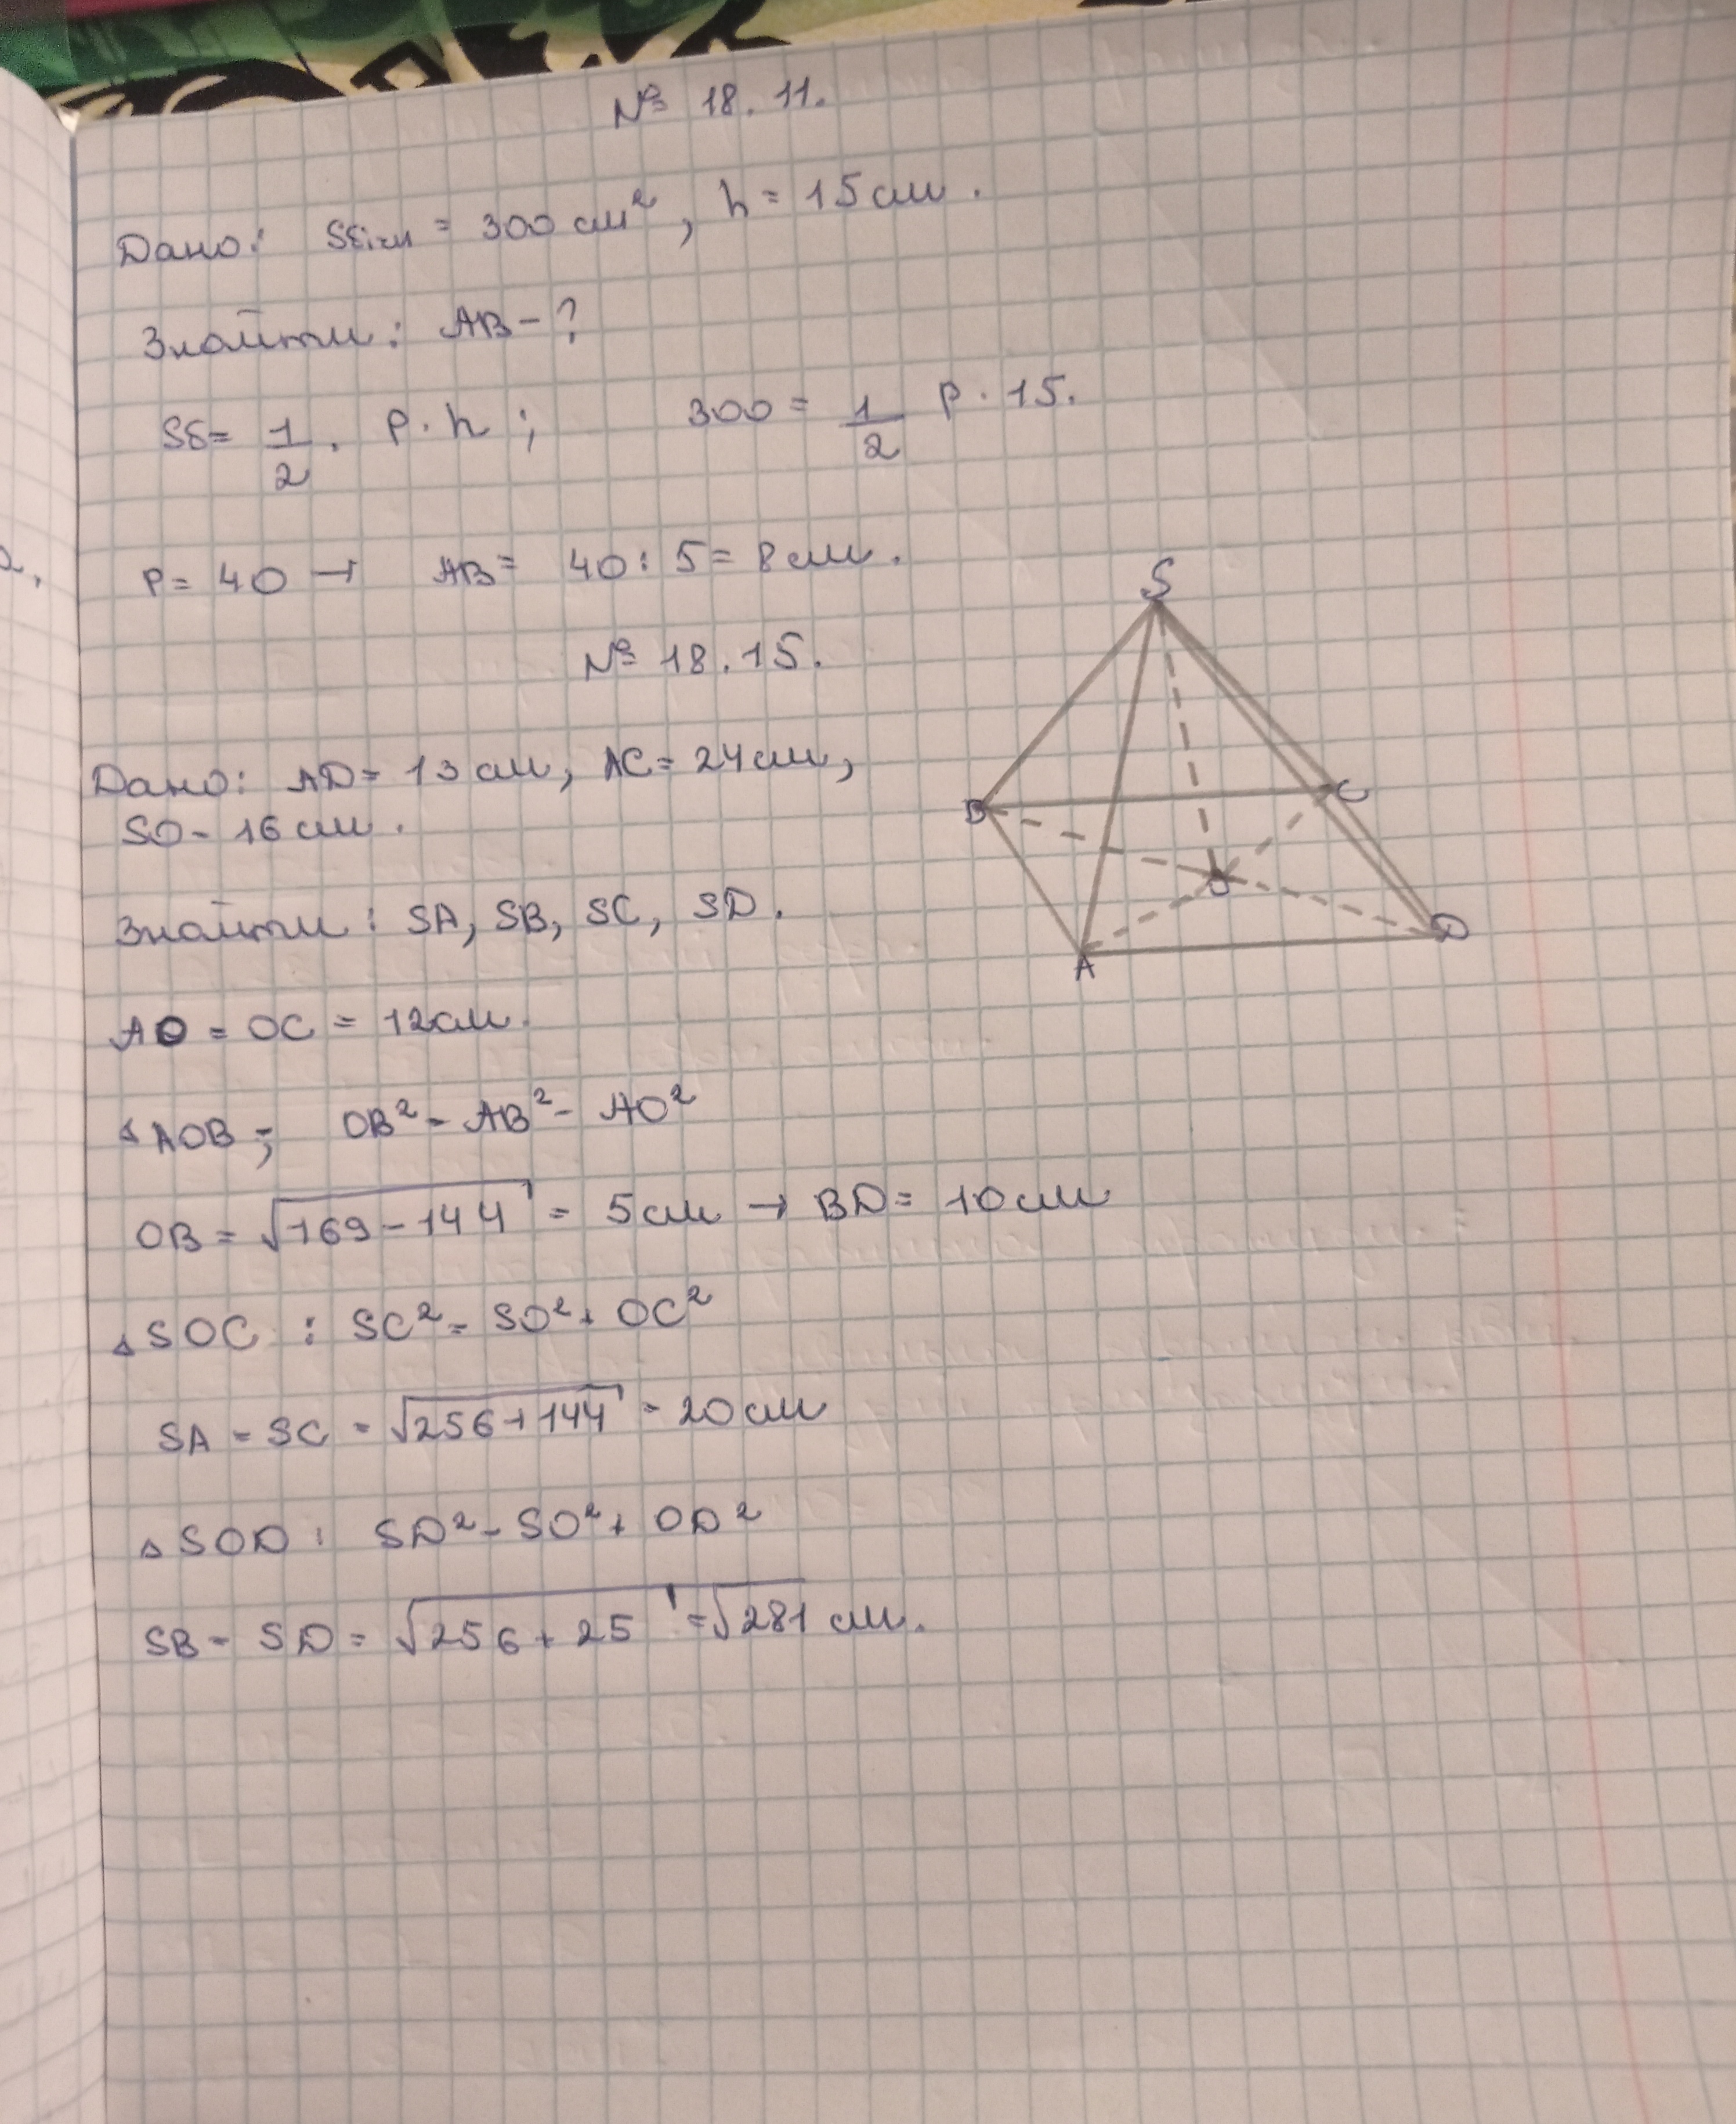 № 18.11.
Дано: Sбічн = 300 см², h = 15 см.
Знайти: AB - ?
Sб = 1/2 · P · h ; 300 = 1/2 P · 15.
P = 40 → AB = 40 : 5 = 8 см.
№ 18.15.
Дано: AD = 13 см, AC = 24 см,
SO - 16 см.
Знайти: SA, SB, SC, SD.
AO = OC = 12 см.
△AOB ; OB² = AB² - AO²
OB = √169 - 144 = 5 см → BD = 10 см
△SOC : SC² = SO² + OC²
SA = SC = √256 + 144 = 20 см
△SOD : SD² = SO² + OD²
SB = SD = √256 + 25 = √281 см.
S
B
C
O
D
A